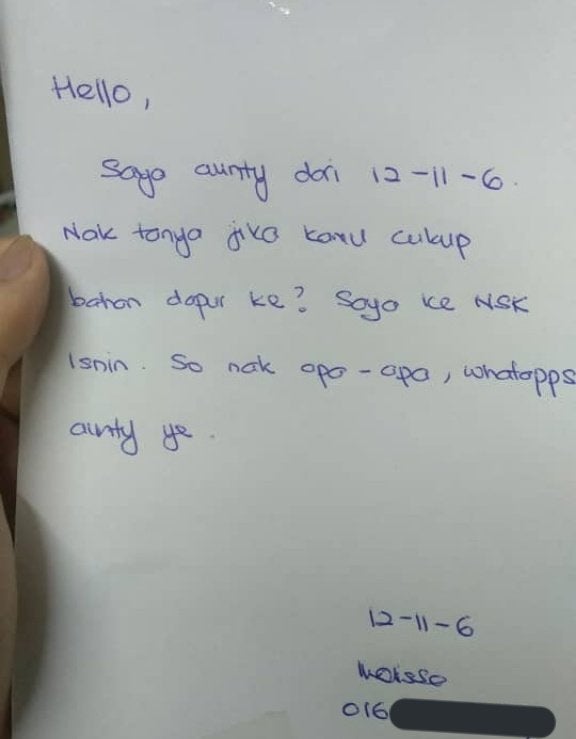 Hello,
Saya aunty dari 12-11-6.
Nak tanya jika kamu cukup
bahan dapur ke? Saya ke NSK
Isnin. So nak apa-apa, whatapps
aunty ye.
12-11-6
016